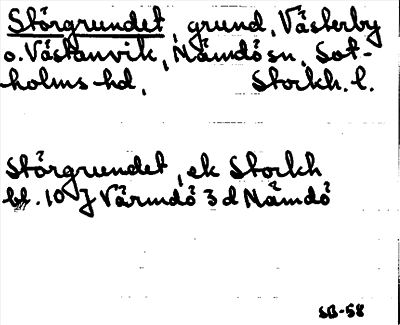 Störgrundet, grund, Västerby
o. Västanvik, Nämdö sn, Sot-
holms hd, Stockh. l.
Störgrundet, ek Stockh
bl. 10 J Värmdö 3 d Nämdö
SB-58